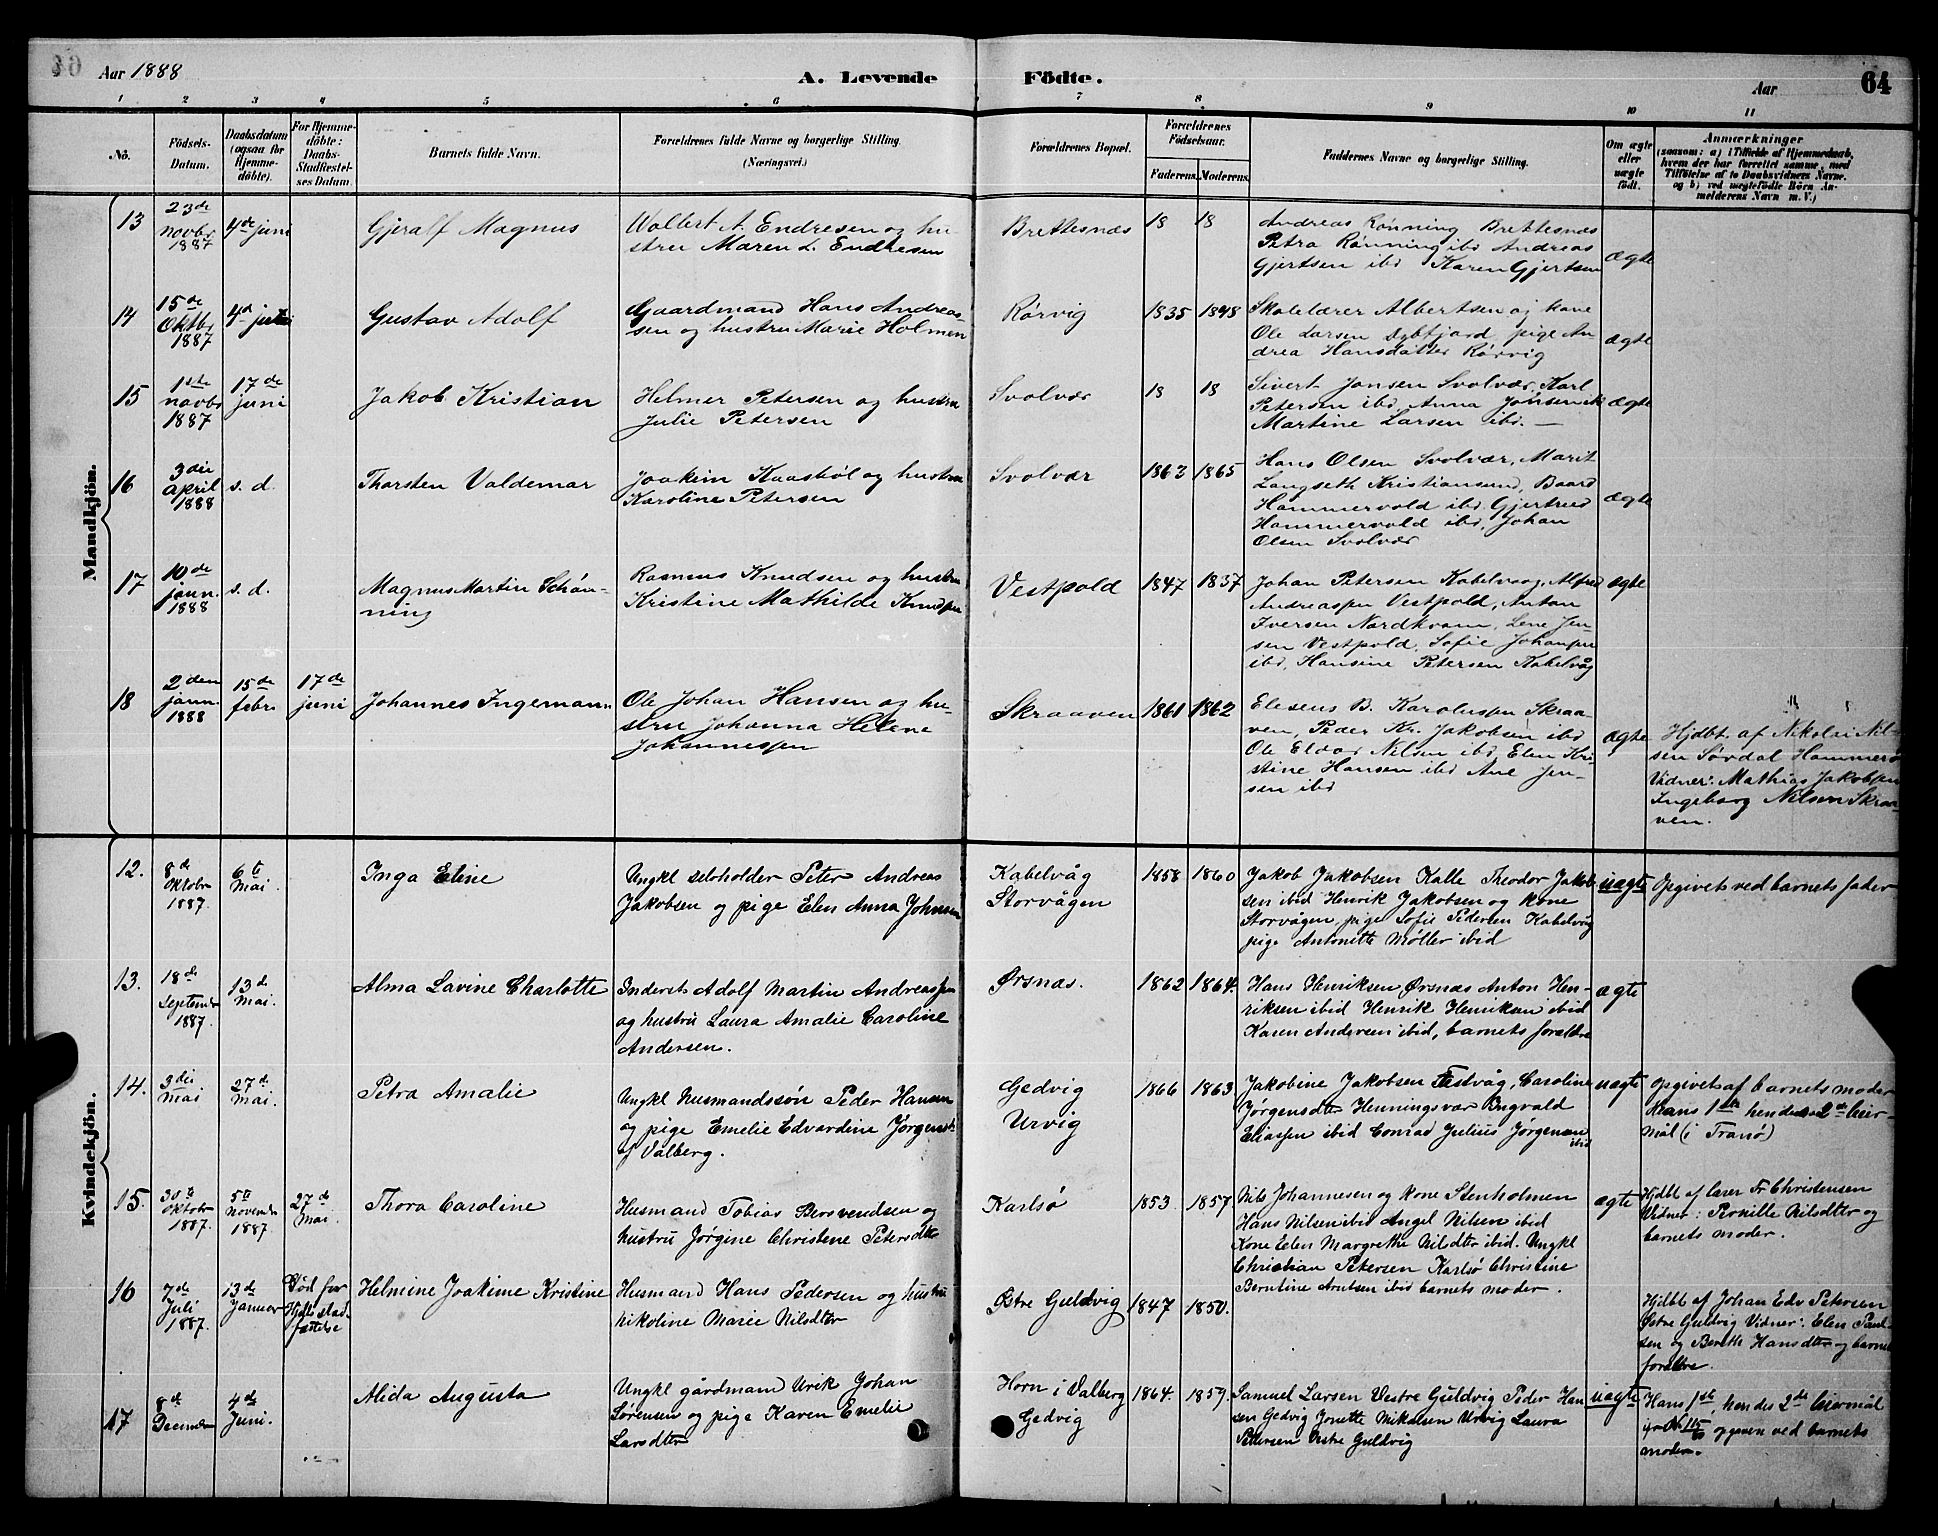 Aar 1888
A. Levende Födte.
Aar
64
1 2 3 4 5 6 7 8 9 10 11
No.
Födsels-
Datum.
Daabsdatum
(ogsaa for
Hjemme-
döbte).
For Hjemme-
döbte:
Daabs-
Stadfæstel-
ses Datum.
Barnets fulde Navn.
Forældrenes fulde Navne og borgerlige Stilling.
(Næringsvei.)
Forældrenes Bopæl.
Forældrenes
Födselsaar.
Faderens. Moderens.
Faddernes Navne og borgerlige Stilling.
Om ægte
eller
uægte
födt.
Anmærkninger
(saasom: a) i Tilfælde af Hjemmedaab,
hvem der har forrettet samme, med
Tilföielse af to Daabsvidners Navne.
og b) ved uægtefödte Börn An-
melderens Navn m. V.)
Mandkjön.
13
23de
novbr
1887
4de juni
Gjeralf Magnus
Wolbert A. Endresen og hu-
stru Maren L. Endresen
Brettesnæs
18
18
Andreas Rønning Brettesnæs
Petra Rønning ibd Andreas
Gjertsen ibd Karen Gjertsen
ægte
14
15de
Oktbr
1887
4d juni
Gustav Adolf
Gaardmand Hans Andreas-
sen og hustru Marie Holmen
Rørvig
1835
1848
Skolelærer Albertsen og kone
Ole Larsen Dybfjord, pige An-
drea Hansdatter Rørvig
ægte
15
1ste
novbr
1887
17de
juni
Jakob Kristian
Helmer Petersen og hustru
Julie Petersen
Svolvær
18
18
Sivert Jansen Svolvær, Karl
Petersen ibd, Anna Jønsen ibd
Martine Larsen ibd. —
ægte
16
3die
april
1888
s. d.
Thorsten Valdemar
Joakim Kaasbøl og hustru
Karoline Petersen
Svolvær
1863
1865
Hans Olsen Svolvær, Marit
Langseth Kristiansund, Baard
Hammervold ibd, Gjertrud
Hammervold ibd, Johan
Olsen Svolvær
ægte
17
10de
jann.
1888
s. d.
Magnus Martin Schøn-
ning
Rasmus Knudsen og hustru
Kristine Mathilde Knudsen
Vestpold
1847
1837
Johan Petersen Kabelvaag, Alfred
Andreassen Vestpold, Anton
Iversen Nordkvam, Lene Jen-
sen Vestpold, Sofie Johansen
ibd, Hansine Petersen Kabelvåg
ægte
18
2den
jann.
1888
15de
febr
17de
juni
Johannes Ingemann
Ole Johan Hansen og hu-
stru Johanna Helene
Johannessen
Skraaven
1861
1862
Elesens B. Karolussen Skraa-
ven, Peder Kr. Jakobsen ibd
Ole Eldar Nilsen ibd, Elen Kri-
stine Hansen ibd Ane Jen-
sen ibd
ægte
Hjdbt. af Nikolai Nil-
sen Sørdal Hammerø
Vidner: Mathias Jakobsen
Ingeborg Nilsen Skraa-
ven.
Kvindekjön.
12.
8de
Oktobr
1887.
6te
Mai.
Inga Eline
Ungkl seloholder Peter Andreas
Jakobsen og pige Elen Anna Johnsen
Kabelvåg
Storvågen
1858
1860
Jakob Jakobsen Kalle Theodor Jakob-
sen ibid Henrik Jakobsen og kone
Storvågen, pige Sofie Pedersen Kabelvåg
pige Antonette Møller ibid
uægte
Opgivet ved barnets fader
13.
18de
Septembr
1887.
13de
Mai.
Alma Lavine Charlotte
Inderst Adolf Martin Andreassen
og hustru Laura Amalie Caroline
Andersen.
Ørsnæs.
1862
1864.
Hans Henriksen Ørsnæs Anton Hen-
riksen ibid Henrik Henriksen ibid
Karen Andersen ibid, barnets forældre
ægte
14.
3die
Mai
27de
Mai.
Petra Amalie
Ungkl Husmandssøn Peder Hansen
og pige Emelie Edvardine Jørgensdt
af Valberg.
Gedvig
Urvig
1866
1863
Jakobine Jakobsen Festvåg, Caroline
Jørgensdtr Henningsvær Ingvald
Eliassen ibid Conrad Julius Jørgensen
ibid
uægte
Opgivet af barnets moder
Hans 1ste hendes 2det leier-
mål (i Tranø)
15.
30te
Oktobr
1887.
5te
Novembr
1887.
27de
Mai.
Thora Caroline
Husmand Tobias Bersvendsen og
hustru Jørgine Christene Petersdtr
Karlsø
1853
1857
Nils Johannesen og kone Stenholmen
Hans Nilsen ibid Angel Nilsen ibid
Kone Elen Margrethe Nilsdtr ibid. Ungkl
Christian Petersen Karlsø Christine
Berntine Arntsen ibid barnets moder.
ægte
Hjdbt af lærer Fr Christensen
Vidner: Pernille Nilsdtr og
barnets moder.
16
7de
Juli
1887.
13de
Januar
Død før
Hjdb. stad-
fæstelse
Helmine Joakime Kristine
Husmand Hans Pedersen og hustru
Nikoline Marie Nilsdtr
Østre Guldvig
1847
1850.
Hjdbt af Johan Edv Petersen
Østre Guldvig Vidner: Elen Paul-
sen og Berith Hansdtr og barnets
forældre.
17
8de
Decembr
4de
Juni.
Alida Augusta
Ungkl gårdmand Urik Johan
Sørensen og pige Karen Emelie
Larsdtr
Horn i Valberg
Gedvig
1864.
1859.
Samuel Larsen Vestre Guldvig Peder Han-
sen Gedvig Jonette Nikolsen Urvig Laura
Petersen Vestre Guldvig
uægte
Hans 1ste, hendes 2de leiermål
opgiven ved barnets
moder.